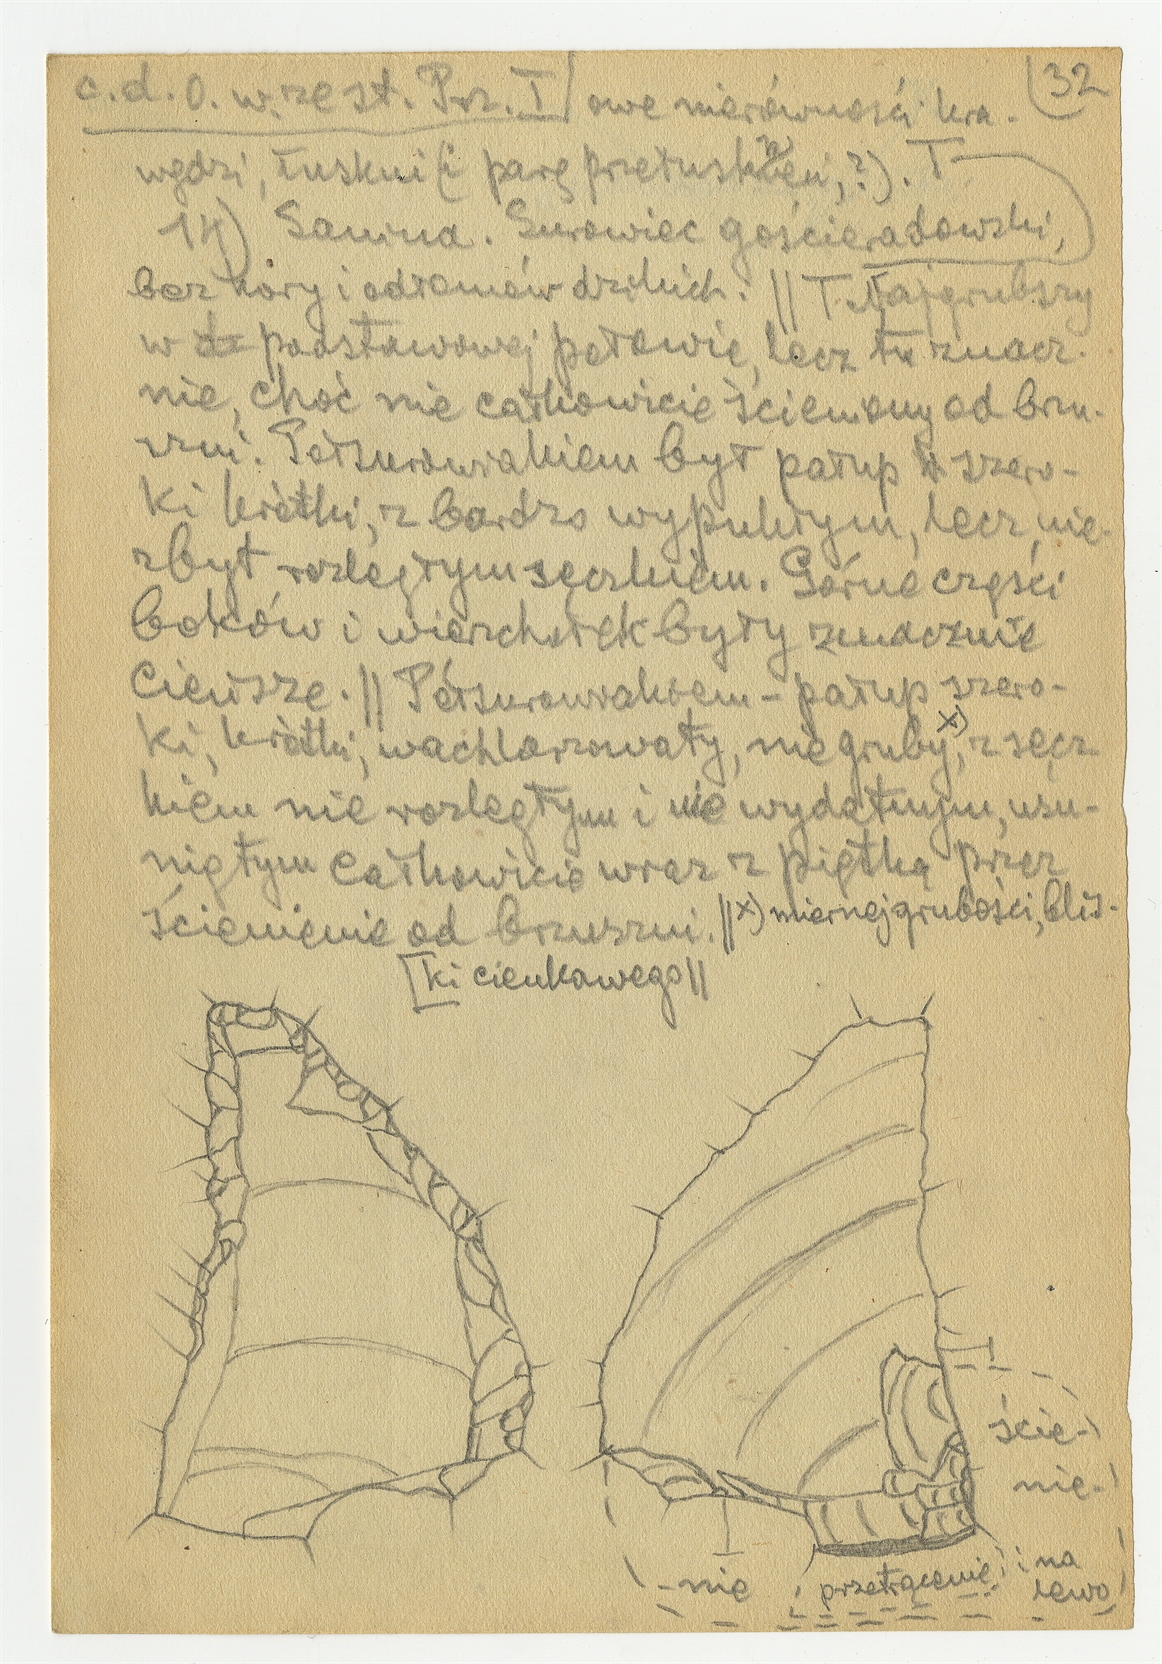 c.d. O. w. ze st. Prz. I owe nierówności kra-
(32
wędzi, łuskni (i parę przełuskień, ?). T
14) Sanna. Surowiec gościeradowski,
bez kory i odłamów dzikich. || T Najgrubszy
w podstawowej połowie, lecz tu znacz-
nie, choć nie całkowicie ścieniony od brzu-
szni. Półsurowiakiem był patup szero-
ki krótki, z bardzo wypukłym, lecz nie-
zbyt rozległym sęczkiem. Górne części
boków i wierzchołek były znacznie
cieńsze. || Półsurowiakiem - patup szero-
ki, krótki, wachlarzowaty, nie gruby x), z sęcz
kiem nie rozległym i nie wydatnym, usu-
niętym całkowicie wraz z piętką przez
ścienienie od brzuszni. || x) miernej grubości, blis-
[ki cienkawego ||
ście-
nie-
-nie
przetrącenie i na
lewo